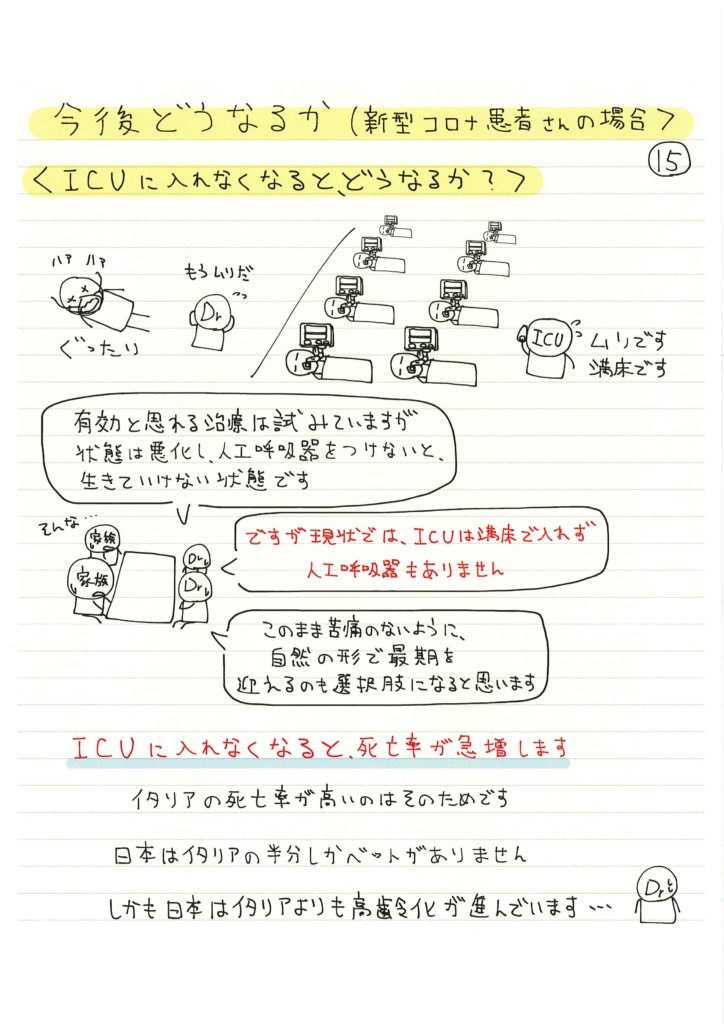 今後どうなるか(新型コロナ患者さんの場合>
15
<ICUに入れなくなると、どうなるか?>
ハァ ハァ
ぐったり
もうムリだ
Dr
ICU
ムリです
満床です
有効と思れる治療は試みていますが
状態は悪化し、人工呼吸器をつけないと、
生きていけない状態です
そんな…
家族
家族
Dr
Dr
ですが現状では、ICUは満床で入れず
人工呼吸器もありません
このまま苦痛のないように、
自然の形で最期を
迎えるのも選択肢になると思います
ICUに入れなくなると、死亡率が急増します
イタリアの死亡率が高いのはそのためです
日本はイタリアの半分しかベットがありません
しかも日本はイタリアよりも高齢化が進んでいます…
Drと